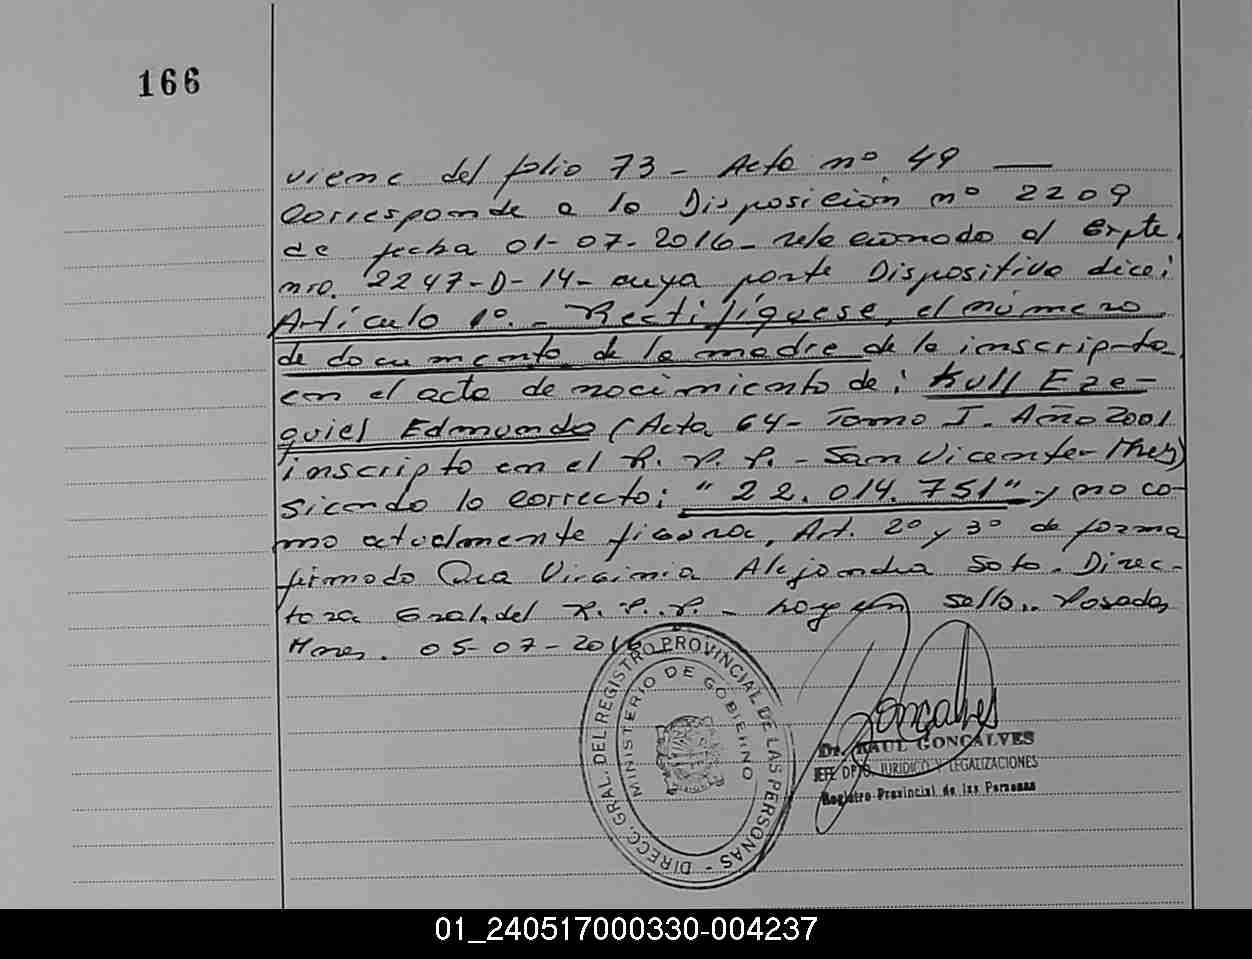 166
viene del folio 73 - Acta nº 49 —
Corresponde a la Disposición nº 2209
de fecha 01-07-2016 - relacionado al Expte.
nro. 2247-D-14- cuya parte Dispositiva dice:
Artículo 1º. - Rectifíquese, el número
de documento de la madre de lo inscripto
en el acta de nacimiento de: Kull Eze-
quiel Edmundo (Acta 64- Tomo I. Año 2001
inscripto en el R. P. P. - San Vicente- Mnes)
siendo lo correcto: "22.014.751" y no co-
mo actualmente figura, Art. 2º y 3º de forma
firmado Dra Virginia Alejandra Soto. Direc-
tora Gral. del R. P. P. - hay un sello.. Posadas
Mnes. 05-07-2016
DIRECC. GRAL. DEL REGISTRO PROVINCIAL DE LAS PERSONAS -
MINISTERIO DE GOBIERNO
Goncalves
Dr. RAUL GONÇALVES
JEFE DPTO. JURIDICO Y LEGALIZACIONES
Registro Provincial de las Personas
01_240517000330-004237